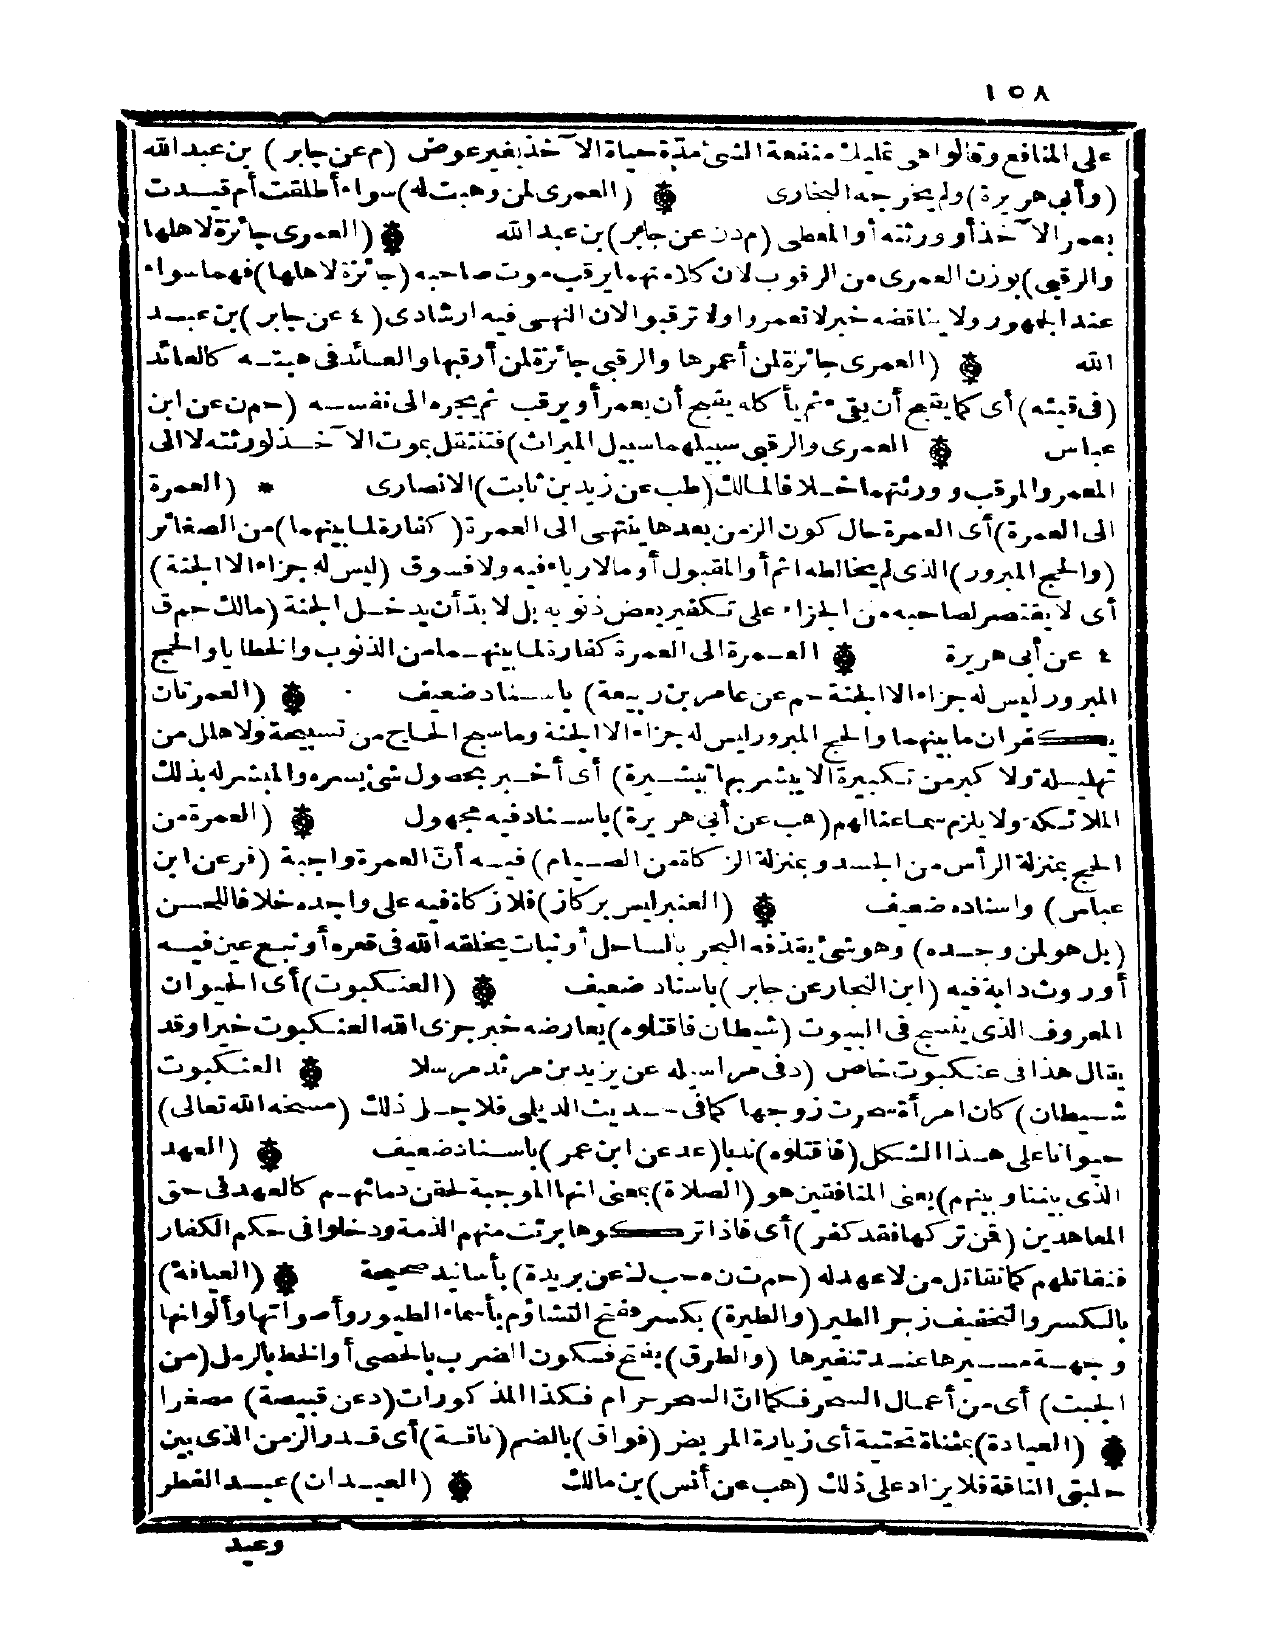 ١٥٨
على المنافع وقالوا هى تمليك منفعة الشئ مدة حياة الآخذ بغير عوض (م عن جابر) بن عبد الله
(وأبى هريرة) ولم يخرجه البخارى ۞ (العمرى لمن وهبت له) سواء أطلقت أم قيدت
بعمر الآخذ أو ورثته أو المعطى (م د ن عن جابر) بن عبد الله ۞ (العمرى جائزة لاهلها
والرقبى) بوزن العمرى من الرقوب لان كلا منهما يرقب موت صاحبه (جائزة لاهلها) فهما سواء
عند الجمهور ولا يناقضه خبر لا تعمروا ولا ترقبوا لان النهى فيه ارشادى (٤ عن جابر) بن عبد
الله ۞ (العمرى جائزة لمن أعمرها والرقبى جائزة لمن أرقبها والعائد فى هبته كالعائد
(فى قيئه) أى كما يقبح أن يقئ ثم يأكله يقبح أن يعمر أو يرقب ثم يجره الى نفسه (حم ن عن ابن
عباس ۞ العمرى والرقبى سبيلهما سبيل الميراث) فتنتقل بموت الآخذ لورثته لا الى
المعمر والمرقب وورثتهما خلافا لمالك (طب عن زيد بن ثابت) الانصارى * (العمرة
الى العمرة) أى العمرة حال كون الزمن بعدها ينتهى الى العمرة (كفارة لما بينهما) من الصغائر
(والحج المبرور) الذى لم يخالطه اثم أو المقبول أو مالا رياء فيه ولا فسوق (ليس له جزاء الا الجنة)
أى لا يقتصر لصاحبه من الجزاء على تكفير بعض ذنوبه بل لابد أن يدخل الجنة (مالك حم ق
٤ عن أبى هريرة ۞ العمرة الى العمرة كفارة لما بينهما من الذنوب والخطايا والحج
المبرور ليس له جزاء الا الجنة حم عن عامر بن ربيعة) باسناد ضعيف ۞ (العمرتان
يكفران ما بينهما والحج المبرور ليس له جزاء الا الجنة وما سبح الحاج من تسبيحة ولا هلل من
تهليلة ولا كبر من تكبيرة الا يبشر بها تبشيرة) أى أخبر بحصول شئ يسره والمبشر له بذلك
الملائكة ولا يلزم سماعنا لهم (هب عن أبى هريرة) باسناد فيه مجهول ۞ (العمرة من
الحج بمنزلة الرأس من الجسد وبمنزلة الزكاة من الصيام) فيه أن العمرة واجبة (فر عن ابن
عباس) واسناده ضعيف ۞ (العنبر ليس بركاز) فلا زكاة فيه على واجده خلافا للحسن
(بل هو لمن وجده) وهو شئ يقذفه البحر بالساحل أو نبات يخلقه الله فى قعره أو نبع عين فيه
أو روث دابة فيه (ابن النجار عن جابر) باسناد ضعيف ۞ (العنكبوت) أى الحيوان
المعروف الذى ينسج فى البيوت (شيطان فاقتلوه) يعارضه خبر جزى الله العنكبوت خيرا وقد
يقال هذا فى عنكبوت خاص (د فى مراسيله عن يزيد بن مرثد مرسلا ۞ العنكبوت
شيطان) كان امرأة سحرت زوجها كما فى حديث الديلمى فلاجل ذلك (مسخه الله تعالى)
حيوانا على هذا الشكل (فاقتلوه) ندبا (عد عن ابن عمر) باسناد ضعيف ۞ (العهد
الذى بيننا وبينهم) يعنى المنافقين هو (الصلاة) بمعنى انها الموجبة لحقن دمائهم كالعهد فى حق
المعاهدين (فمن تركها فقد كفر) أى فاذا تركوها برئت منهم الذمة ودخلوا فى حكم الكفار
فنقاتلهم كما نقاتل من لا عهد له (حم ت ن ه حب ك عن بريدة) بأسانيد صحيحة ۞ (العيافة)
بالكسر والتخفيف زجر الطير (والطيرة) بكسر ففتح التشاؤم بأسماء الطيور وأصواتها وألوانها
وجهة مسيرها عند تنفيرها (والطرق) بفتح فسكون الضرب بالحصى أو الخط بالرمل (من
الجبت) أى من أعمال السحر فكما ان السحر حرام فكذا المذكورات (د عن قبيصة) مصغرا
۞ (العيادة) بمثناة تحتية أى زيارة المريض (فواق) بالضم (ناقة) أى قدر الزمن الذى بين
حلبتى الناقة فلا يزاد على ذلك (هب عن أنس) بن مالك ۞ (العيدان) عيد الفطر
وعيد